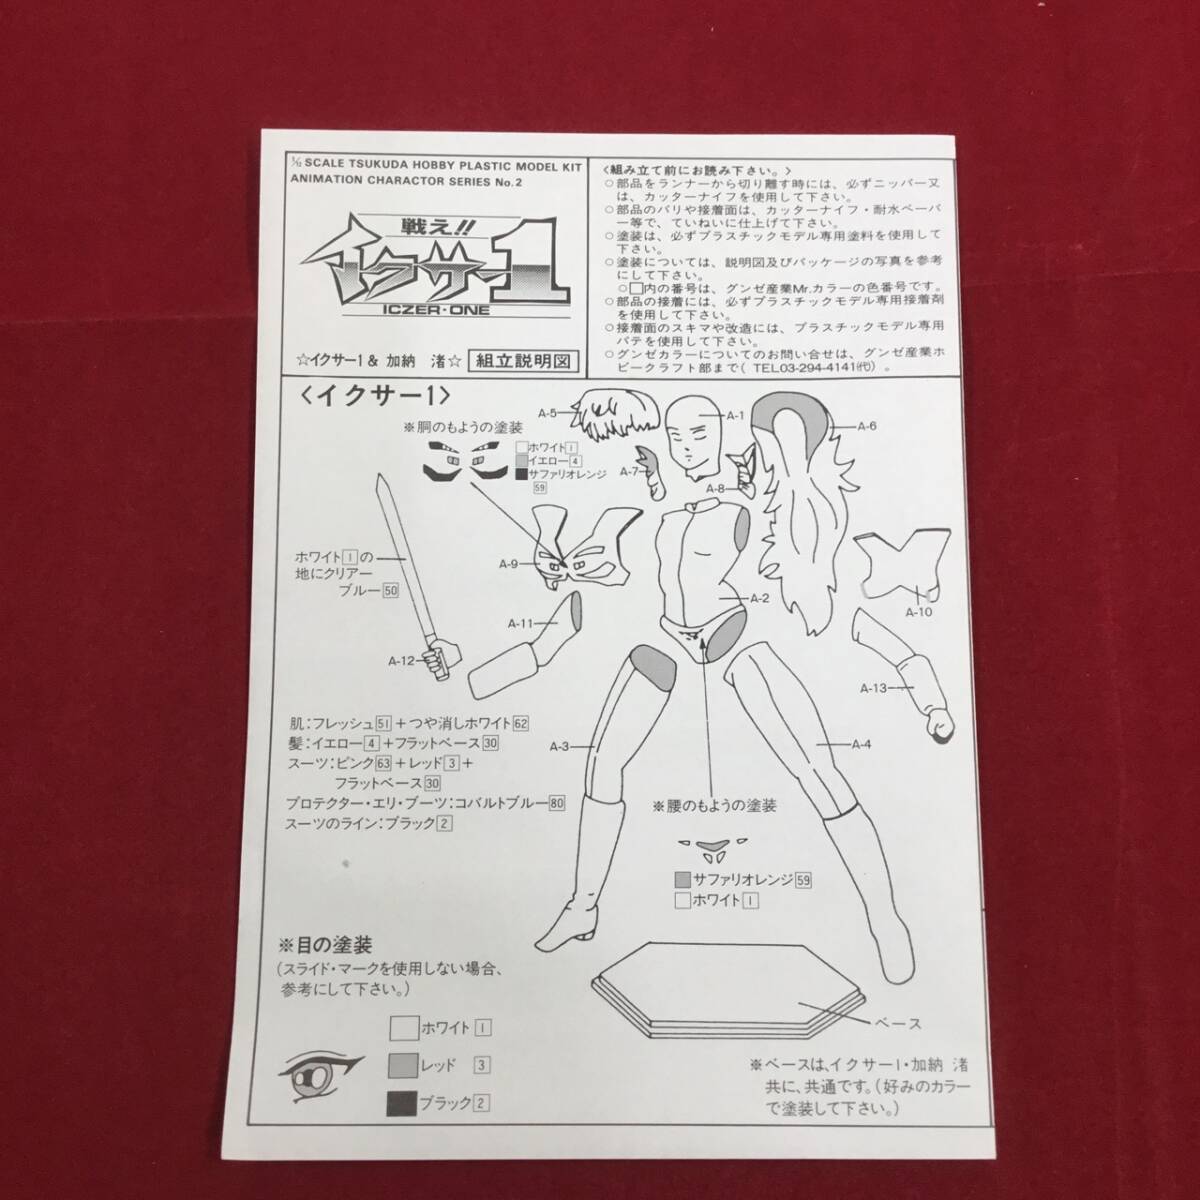 1/12 SCALE TSUKUDA HOBBY PLASTIC MODEL KIT
ANIMATION CHARACTOR SERIES No.2
戦え!!
イクサー1
ICZER·ONE
☆イクサー1& 加納 渚☆ 組立説明図
<組み立て前にお読み下さい。>
○部品をランナーから切り離す時には、必ずニッパー又
は、カッターナイフを使用して下さい。
○部品のバリや接着面は、カッターナイフ・耐水ペーパ
ー等で、ていねいに仕上げて下さい。
○塗装は、必ずプラスチックモデル専用塗料を使用して
下さい。
○塗装については、説明図及びパッケージの写真を参考
にして下さい。
○□内の番号は、グンゼ産業Mr.カラーの色番号です。
○部品の接着には、必ずプラスチックモデル専用接着剤
を使用して下さい。
○接着面のスキマや改造には、プラスチックモデル専用
パテを使用して下さい。
○グンゼカラーについてのお問い合せは、グンゼ産業ホ
ビークラフト部まで( TEL03-294-4141㈹) 。
〈イクサー1〉
※胴のもようの塗装
ホワイト1
イエロー4
サファリオレンジ
59
A-5
A-1
A-6
A-7
A-8
A-9
A-2
A-10
A-11
A-12
A-13
A-3
A-4
ホワイト1の
地にクリアー
ブルー50
肌:フレッシュ51+つや消しホワイト62
髪:イエロー4+フラットベース30
スーツ:ピンク63+レッド3+
フラットベース30
プロテクター・エリ・ブーツ:コバルトブルー80
スーツのライン:ブラック2
※腰のもようの塗装
サファリオレンジ59
ホワイト1
※目の塗装
(スライド・マークを使用しない場合、
参考にして下さい。)
ホワイト 1
レッド 3
ブラック 2
ベース
※ベースは、イクサー1・加納 渚
共に、共通です。(好みのカラー
で塗装して下さい。)